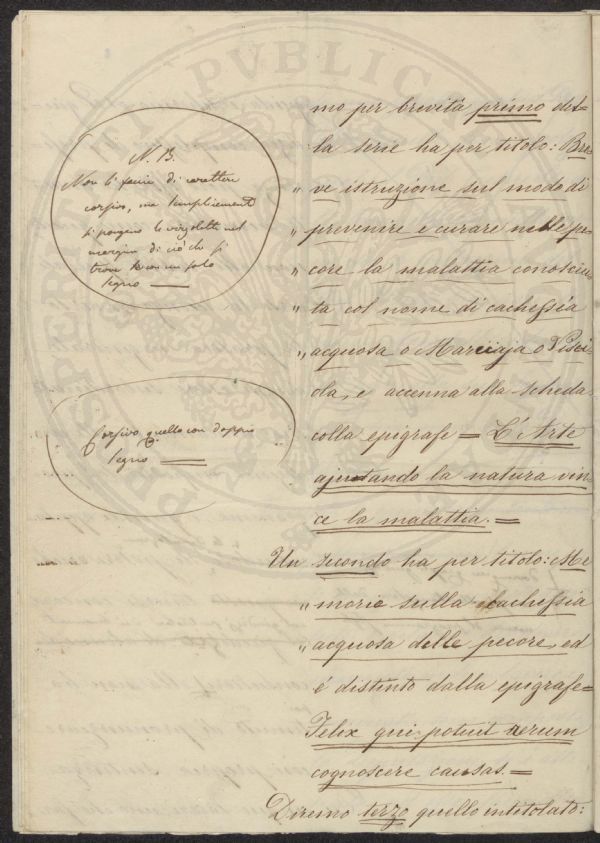 N. B.
Non si faccia di carattere
corsivo, ma semplicemente
si pongano le virgolette nel
margine di ciò che si
trova con un solo
segno
Corsivo quello con doppio
segno
mo per brevità primo del=
la serie ha per titolo: Bre
„ ve istruzione sul modo di
„ prevenire e curare nelle pe
„ core la malattia conosciu
„ ta col nome di cachessia
„ acquosa o Marciaja o Visci
ola, e accenna alla scheda
colla epigrafe = L'Arte
ajutando la natura vin=
ce la malattia. =
Un secondo ha per titolo: Me
„ morie sulla Cachessia
„ acquosa delle pecore, ed
é distinto dalla epigrafe=
Felix qui potuit rerum
cognoscere causas. =
Diremo terzo quello intitolato: